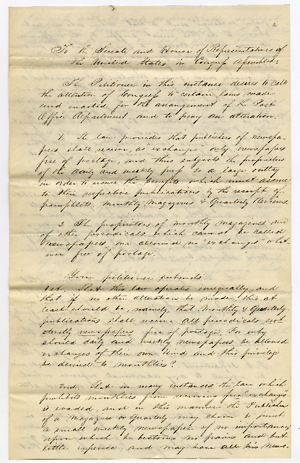 To the Senate and House of Representatives of
the United States in Congress Assembled:
The Petitioner in this instance desires to call
the attention of Congress to certain laws made
and enacted for the arrangement of the Post
Office Department and to pray an alteration.
1. The law provides that publishers of newspa-
pers shall receive, as exchange only, newspapers
free of postage, and thus subjects the proprietors
of the daily and weekly press to a large outlay
in order to the which must
to their respective publications by the receipt of
pamphlets, Monthly Magazines & Quarterly Reviews.
2. The proprietors of monthly magazines and
of other periodicals which cannot be called
Newspapers are allowed no "exchanges" what-
ever free of postage.
Your petitioner submits:
1st. That this law operates unequally, and
that if no other alteration be made this at
least should be, namely, that Monthly & Quarterly
publications shall receive all periodicals not
strictly newspapers free of postage. For why
should daily and weekly newspapers be allowed
exchanges of their own kind and this privilege
be denied to monthlies?
2nd. That in many instances the law which
prohibits monthlies from receiving free exchanges
is evaded, and in this manner: the Publisher
of a Magazine or Quarterly may print
a small weekly newspaper of no importance
upon which he bestows no pains and but
little expense, and may have all his